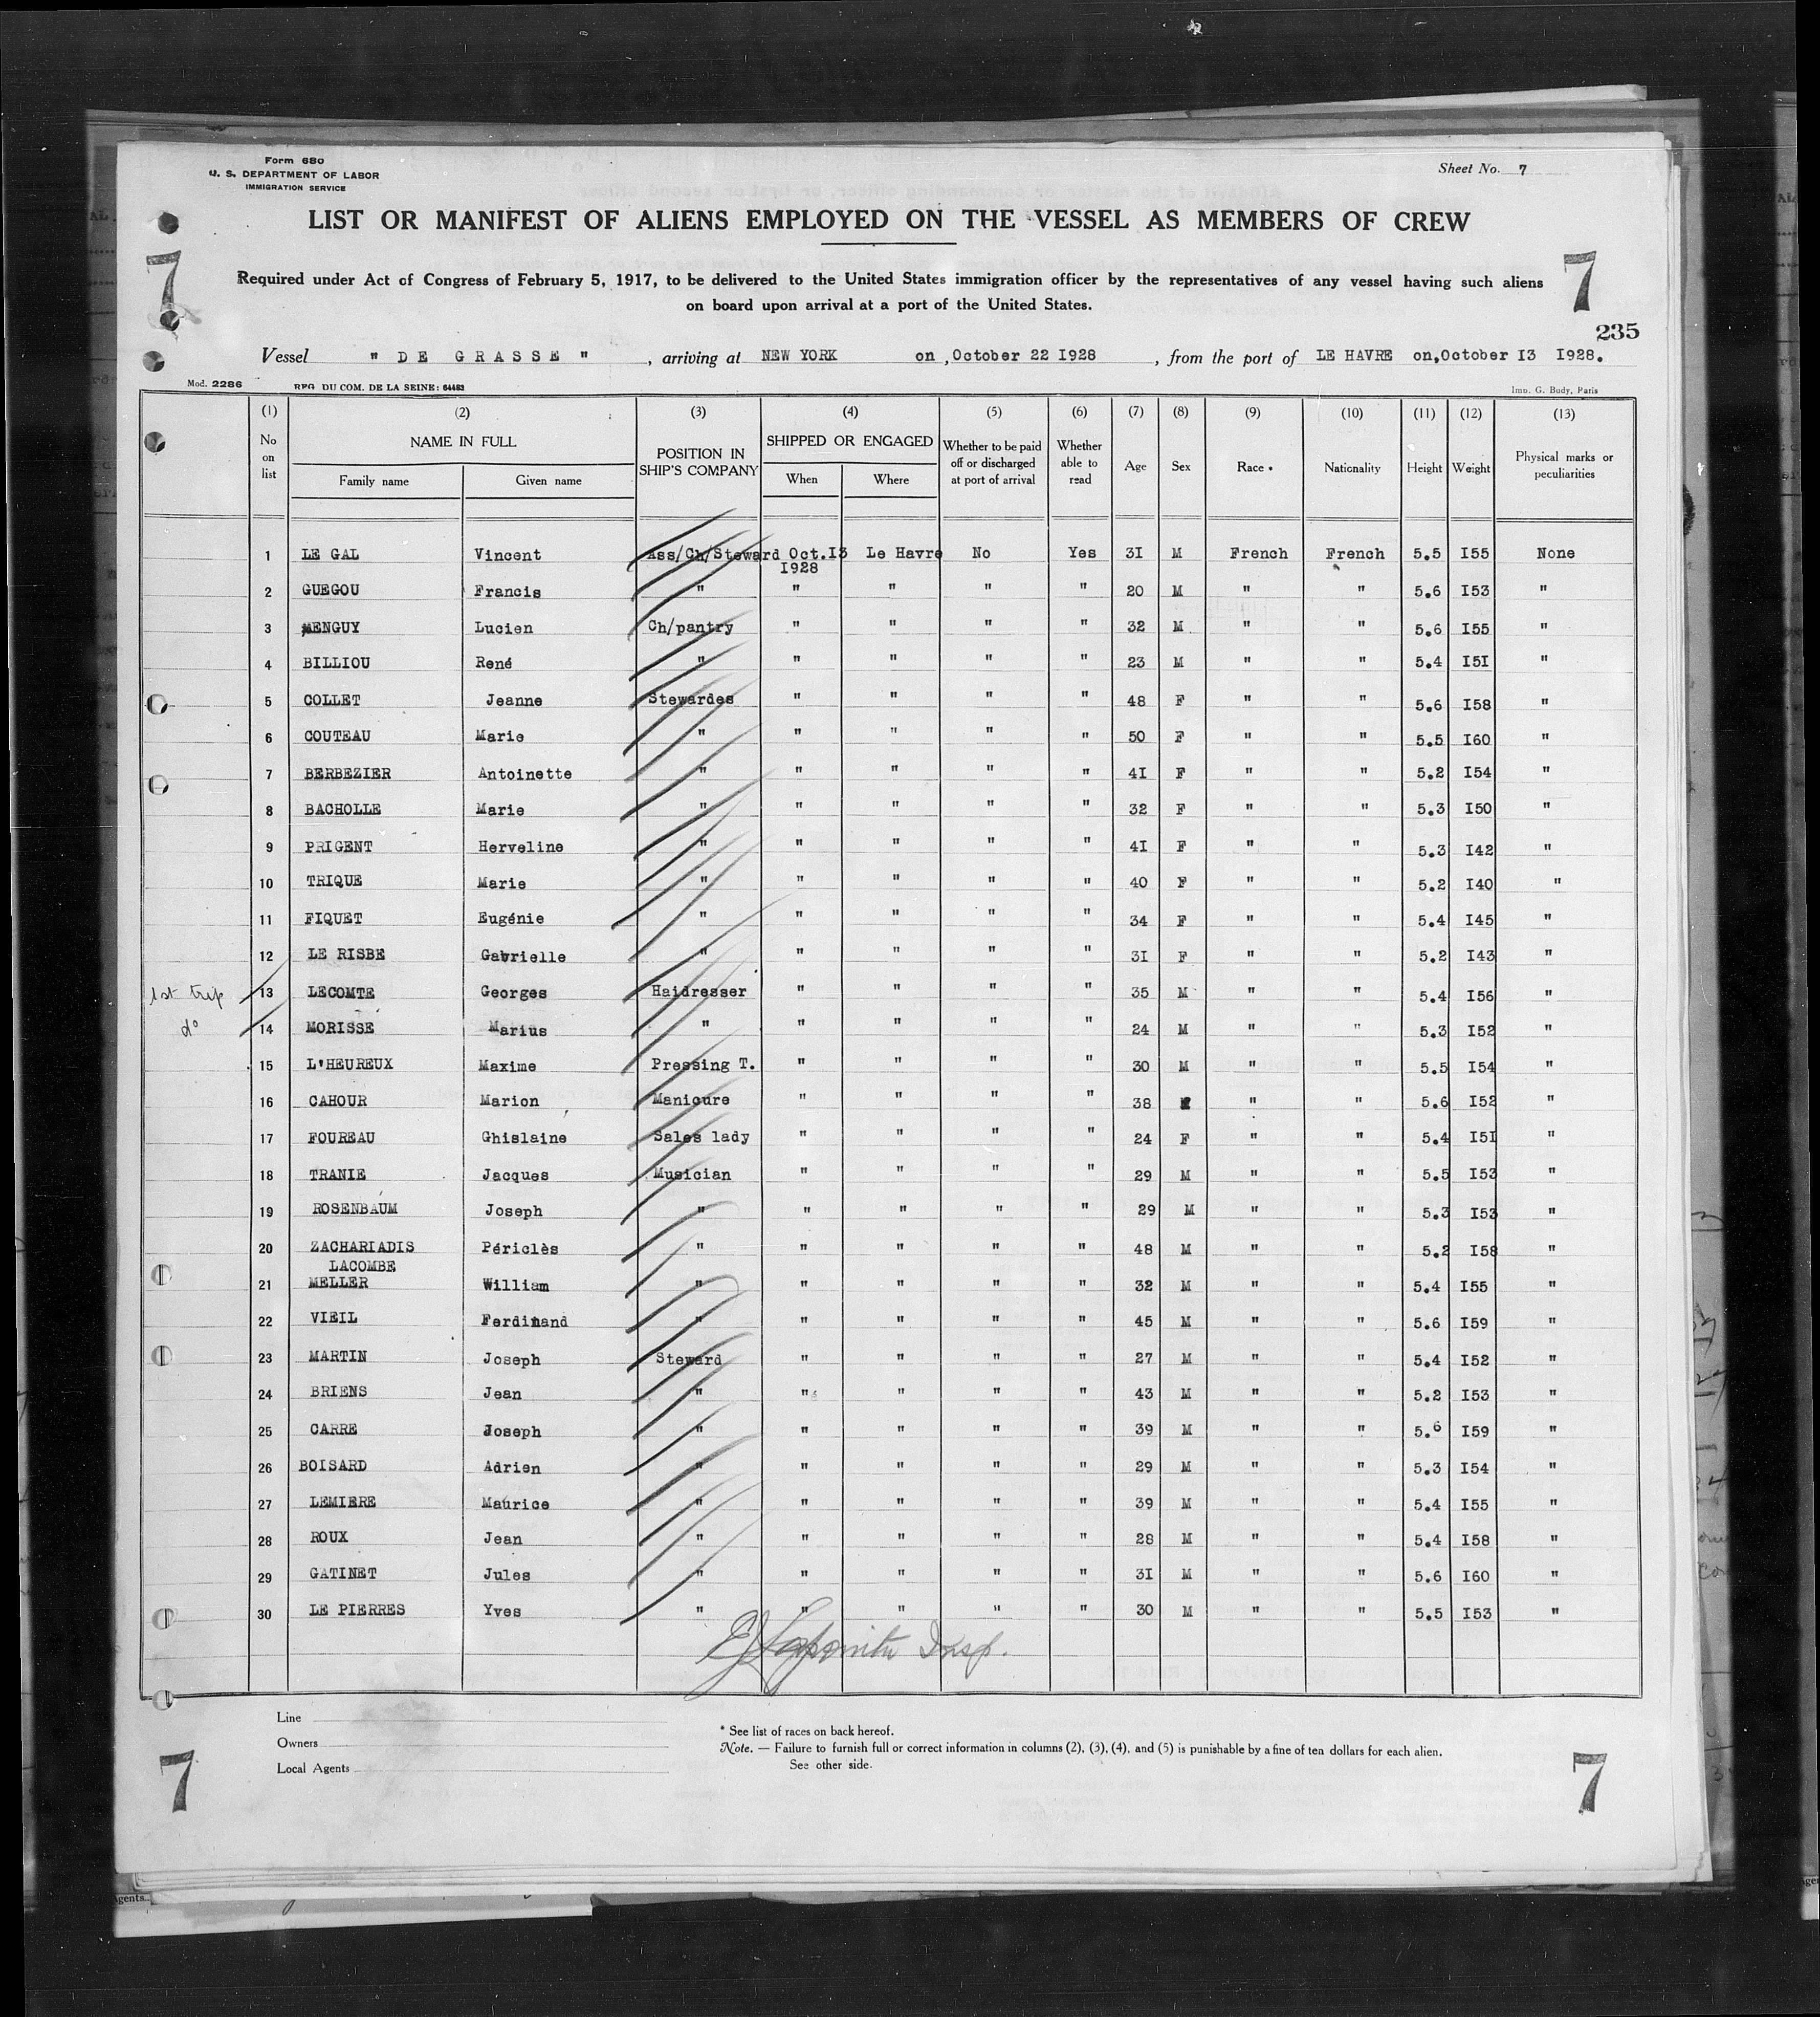 Form 680
U. S. DEPARTMENT OF LABOR
IMMIGRATION SERVICE
Sheet No. 7
LIST OR MANIFEST OF ALIENS EMPLOYED ON THE VESSEL AS MEMBERS OF CREW
7 7
Required under Act of Congress of February 5, 1917, to be delivered to the United States immigration officer by the representatives of any vessel having such aliens
on board upon arrival at a port of the United States.
235
Vessel " DE GRASSE " , arriving at NEW YORK on ,October 22 I928 , from the port of LE HAVRE on,October I3 I928.
Mod. 2286 REG. DU COM. DE LA SEINE: 64483 Imp. G. Budy, Paris
(1) (2) (3) (4) (5) (6) (7) (8) (9) (10) (11) (12) (13)
No on list NAME IN FULL Family name Given name POSITION IN SHIP'S COMPANY SHIPPED OR ENGAGED When Where Whether to be paid off or discharged at port of arrival Whether able to read Age Sex Race * Nationality Height Weight Physical marks or peculiarities
1 LE GAL Vincent Ass/Ch/Steward Oct.I3 I928 Le Havre No Yes 3I M French French 5.5 I55 None
2 GUEGOU Francis " " " " " 20 M " " 5.6 I53 "
3 MENGUY Lucien Ch/pantry " " " " 32 M " " 5.6 I55 "
4 BILLIOU René " " " " " 23 M " " 5.4 I5I "
5 COLLET Jeanne Stewardes " " " " 48 F " " 5.6 I58 "
6 COUTEAU Marie " " " " " 50 F " " 5.5 I60 "
7 BERBEZIER Antoinette " " " " " 4I F " " 5.2 I54 "
8 BACHOLLE Marie " " " " " 32 F " " 5.3 I50 "
9 PRIGENT Herveline " " " " " 4I F " " 5.3 I42 "
10 TRIQUE Marie " " " " " 40 F " " 5.2 I40 "
11 FIQUET Eugénie " " " " " 34 F " " 5.4 I45 "
12 LE RISBE Gabrielle " " " " " 3I F " " 5.2 I43 "
1st trip 13 LECOMTE Georges Haidresser " " " " 35 M " " 5.4 I56 "
do 14 MORISSE Marius " " " " " 24 M " " 5.3 I52 "
15 L'HEUREUX Maxime Pressing T. " " " " 30 M " " 5.5 I54 "
16 CAHOUR Marion Manicure " " " " 38 " " 5.6 I52 "
17 FOUREAU Ghislaine Sales lady " " " " 24 F " " 5.4 I5I "
18 TRANIE Jacques Musician " " " " 29 M " " 5.5 I53 "
19 ROSENBAUM Joseph " " " " " 29 M " " 5.3 I53 "
20 ZACHARIADIS Périclès " " " " " 48 M " " 5.2 I58 "
LACOMBE
21 MELLER William " " " " " 32 M " " 5.4 I55 "
22 VIEIL Ferdinand " " " " " 45 M " " 5.6 I59 "
23 MARTIN Joseph Steward " " " " 27 M " " 5.4 I52 "
24 BRIENS Jean " " " " " 43 M " " 5.2 I53 "
25 CARRE Joseph " " " " " 39 M " " 5.6 I59 "
26 BOISARD Adrien " " " " " 29 M " " 5.3 I54 "
27 LEMIERE Maurice " " " " " 39 M " " 5.4 I55 "
28 ROUX Jean " " " " " 28 M " " 5.4 I58 "
29 GATINET Jules " " " " " 3I M " " 5.6 I60 "
30 LE PIERRES Yves " " " " " 30 M " " 5.5 I53 "
Insp.
Line
Owners
Local Agents
* See list of races on back hereof.
Note. — Failure to furnish full or correct information in columns (2), (3), (4), and (5) is punishable by a fine of ten dollars for each alien.
See other side.
7 7